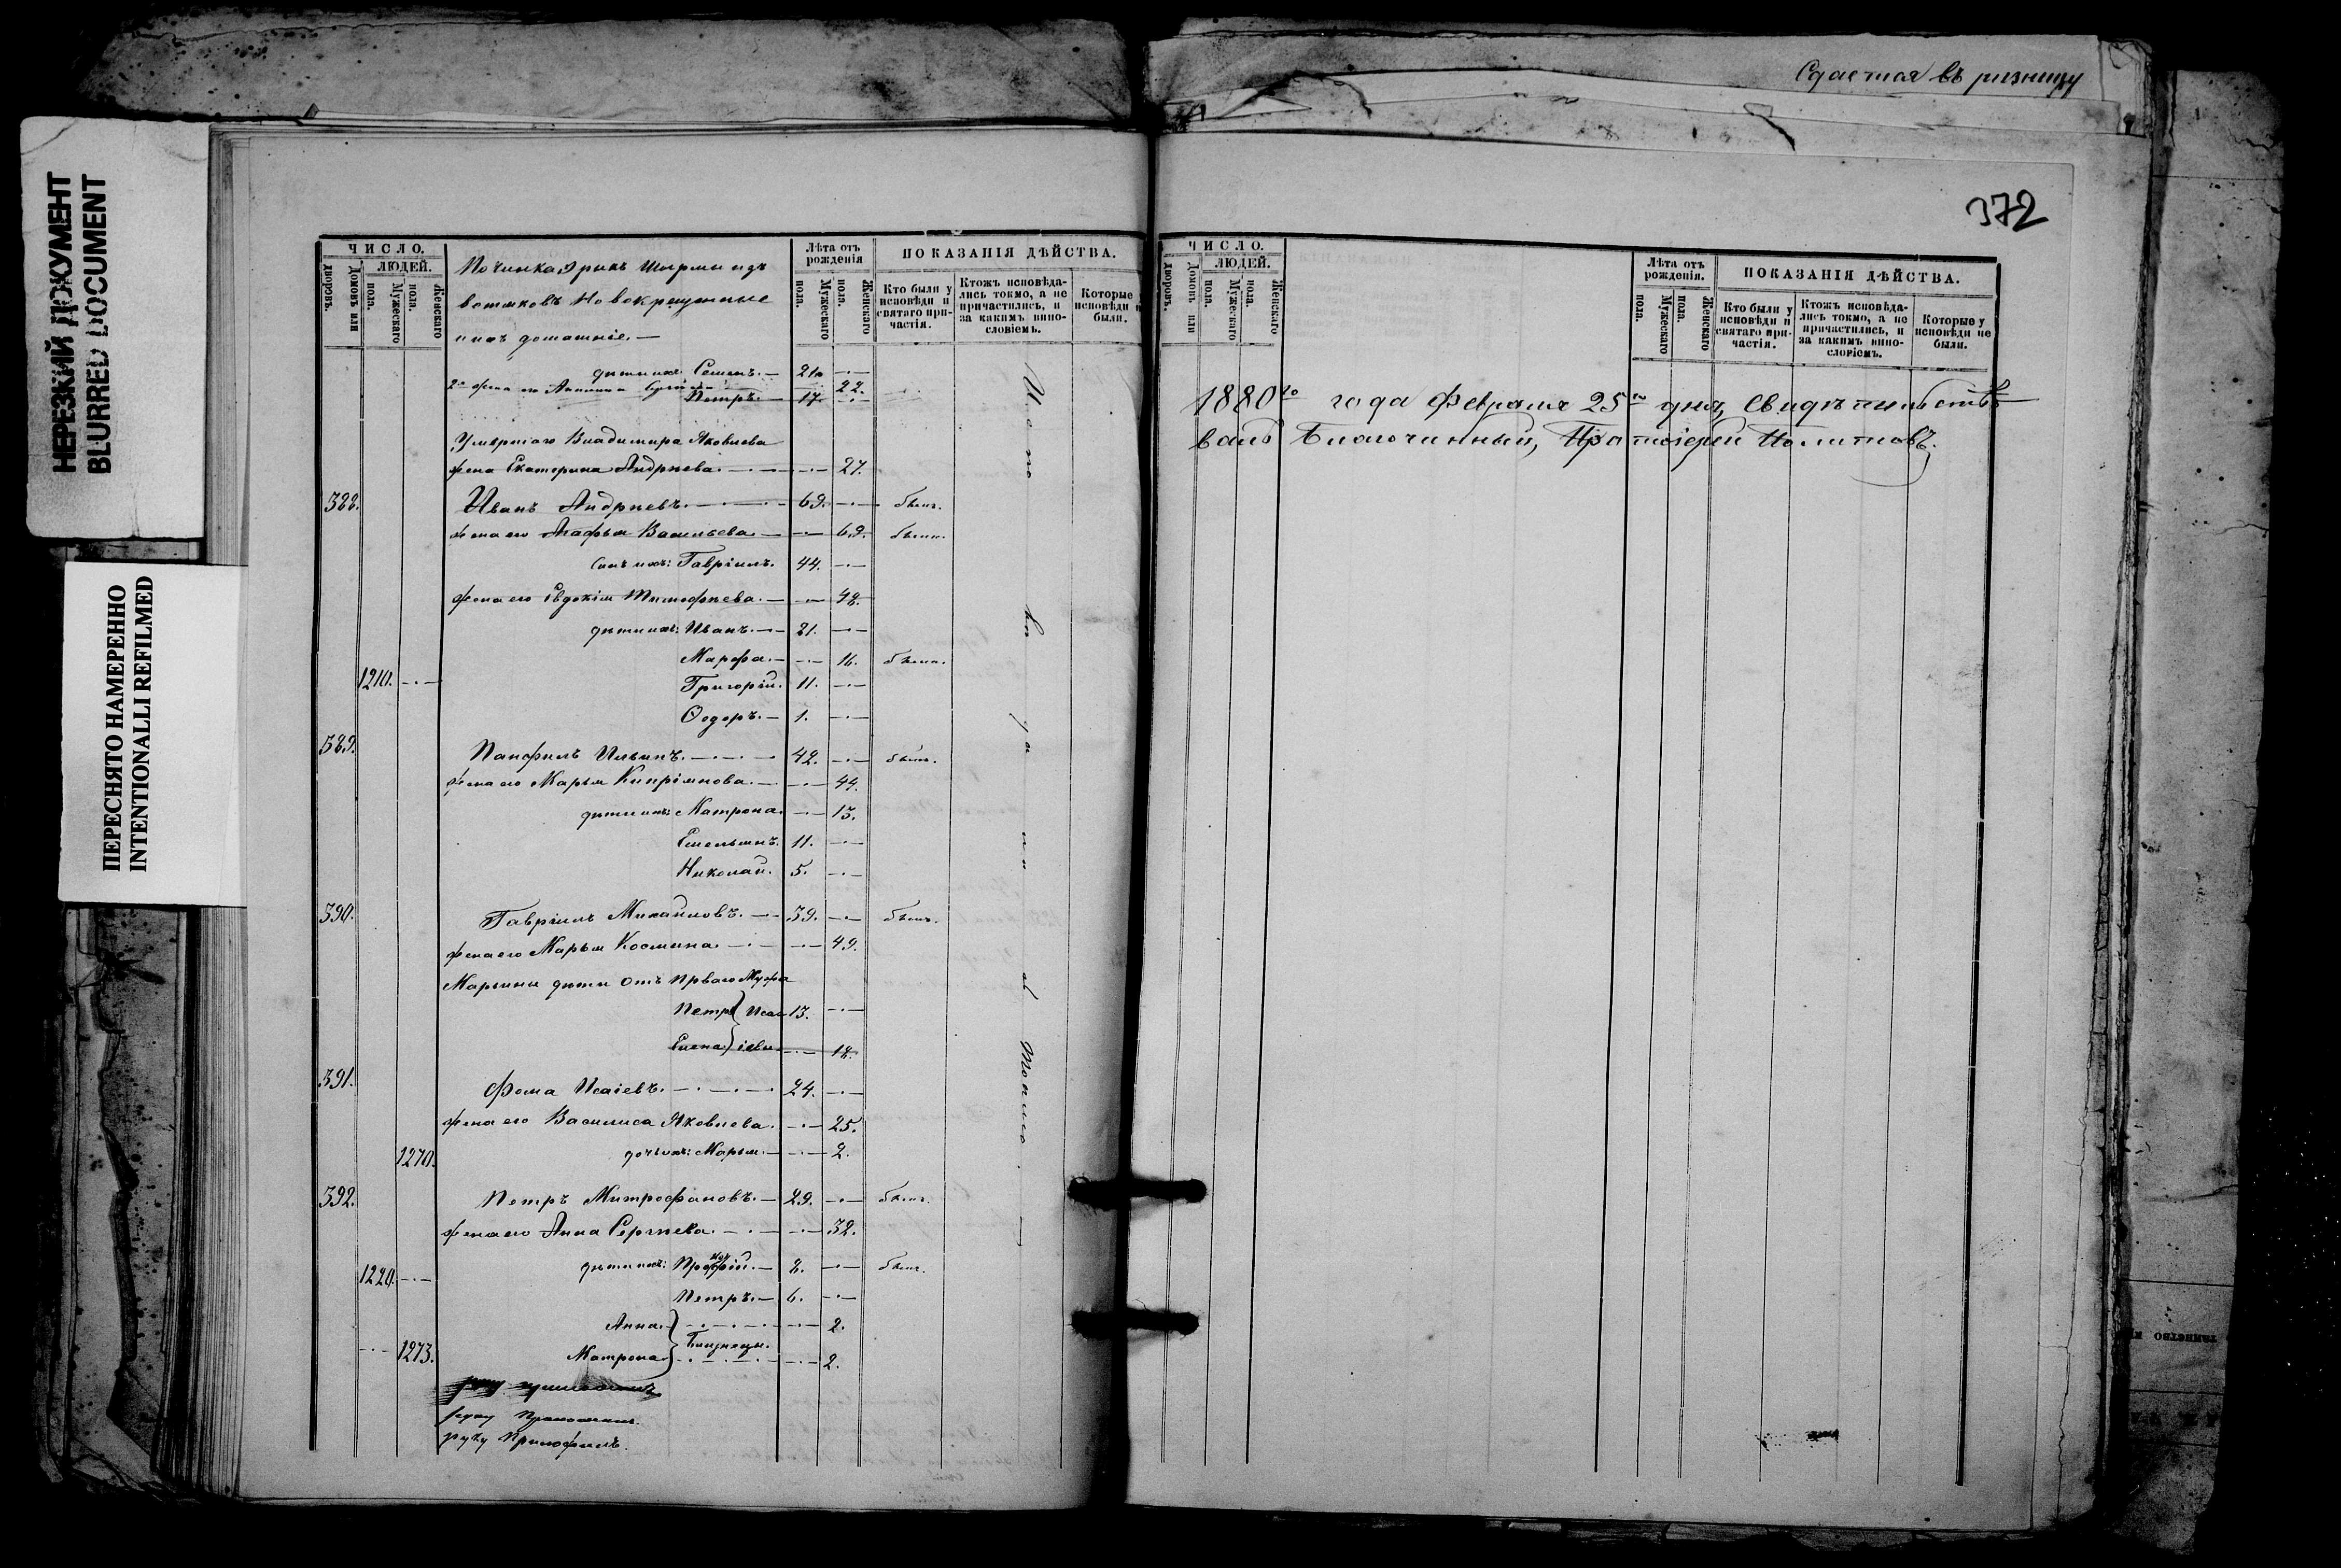 Сдается въ ризницу
372
НЕРЕЗКИЙ ДОКУМЕНТ
BLURRED DOCUMENT
ПЕРЕСНЯТО НАМЕРЕННО
INTENTIONALLI REFILMED
ЧИСЛО.
ЛЮДЕЙ.
Домовъ или дворовъ.
Мужескаго пола.
Женскаго пола.
Починка Ярыкъ Ширмы изъ
вотяковъ Новокрещенные
и ихъ домашніе. —
Лѣта отъ рожденія
Мужескаго пола.
Женскаго пола.
ПОКАЗАНІЯ ДѢЙСТВА.
Кто были у исповѣди и святаго причастія.
Ктожъ исповѣдались токмо, а не причастились, и за какимъ винословіемъ.
Которые исповѣди и были.
дѣти ихъ: Семенъ. — 21. —·—
22.
Петръ. — 17. —·—
Умершаго Владимира Яковлева
жена Екатерина Андреева. —·— 27.
388. Иванъ Андреевъ. —·— 69. —·— былъ.
жена его Агафья Васильева — —·— 69. была.
сынъ ихъ: Гавріилъ. 44. —·—
жена его Евдокія Тимофѣева. — —·— 48.
дѣти ихъ: Иванъ. —·— 21. —·—
Марфа. — —·— 16. была.
1210. —·— Григорій. 11. —·—
Ѳедоръ. — 1. —·—
389. Панфилъ Ильинъ. —·—·— 42. —·— былъ.
жена его Марья Кипріянова. — —·— 44.
дѣти ихъ: Матрона. —·— 13.
Емельянъ. 11. —·—
Николай. 5. —·—
390. Гавріилъ Михайловъ. —·— 39. —·— былъ.
жена его Марья Космина. —·— —·— 49.
Марьины дѣти отъ перваго Мужа
Петръ } Исаі 13. —·—
Елена } іевы —·— 18.
391. Фома Исаіевъ. —·—·—·— 24. —·—
жена его Василиса Яковлева. —·— 25.
1270. дочь ихъ: Марья. — —·— 2.
392. Петръ Митрофановъ. — 29. —·— былъ.
жена его Анна Сергѣева. —·— —·— 32.
дѣти ихъ: 8. —·— былъ.
1220. —·—
Петръ. — 6. —·—
Анна. } —·—·— —·— 2.
Близнецы.
—·— 1273. Матрона. } —·—·— —·— 2.
ЧИСЛО.
ЛЮДЕЙ.
Домовъ или дворовъ.
Мужескаго пола.
Женскаго пола.
Лѣта отъ рожденія.
Мужескаго пола.
Женскаго пола.
ПОКАЗАНІЯ ДѢЙСТВА.
Кто были у исповѣди и святаго причастія.
Ктожъ исповѣдались токмо, а не причастились, и за какимъ винословіемъ.
Которые у исповѣди не были.
1880го года Февраля 25го дня, Свидѣтельство
валъ Благочинный, Протоіерей